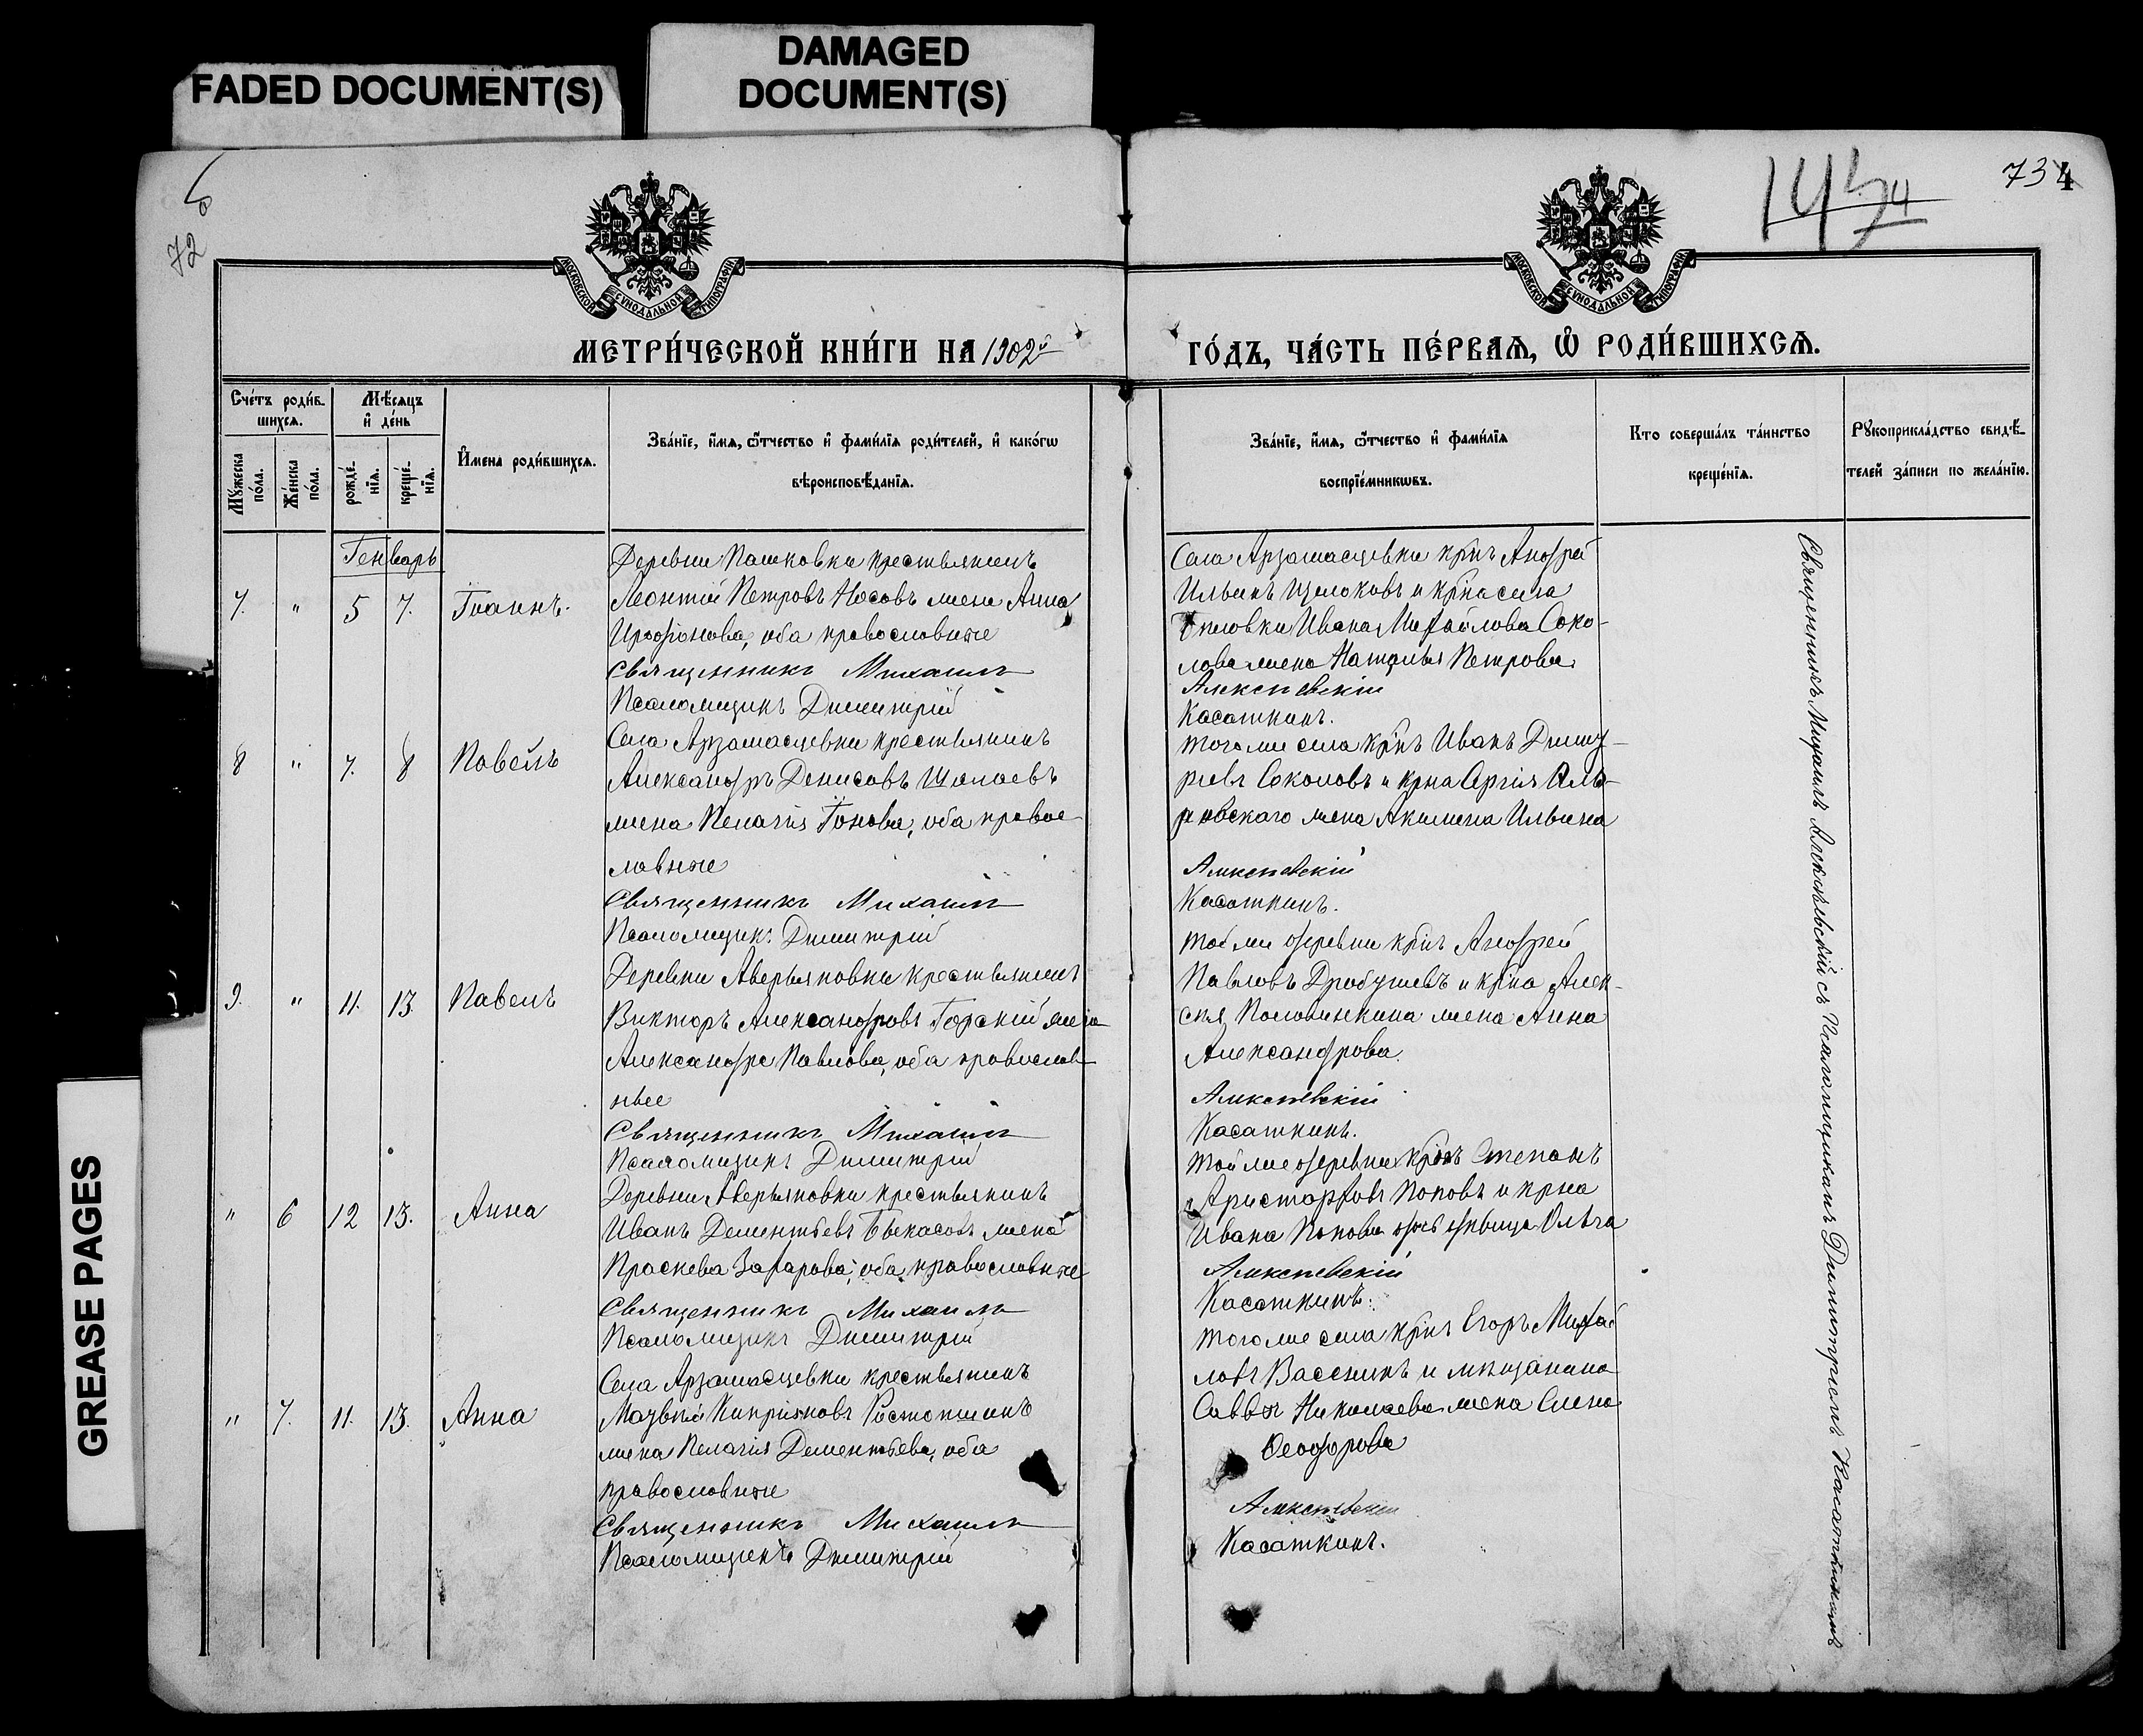 FADED DOCUMENT(S)
DAMAGED
DOCUMENT(S)
GREASE PAGES
6
72
734
МОСКОВСКОЙ СѴНОДАЛЬНОЙ ТИПОГРАФІИ
МОСКОВСКОЙ СѴНОДАЛЬНОЙ ТИПОГРАФІИ
МЕТРИ́ЧЕСКОЙ КНИ́ГИ НА 1902й
ГО́ДЪ, ЧА́СТЬ ПЕ́РВАѦ, Ѡ҆ РОДИ́ВШИХСѦ.
Сче́тъ роди́в-
шихсѧ.
Мꙋ́жеска по́ла.
Же́нска по́ла.
Мѣ́сѧцъ
и҆ де́нь
рожде́-нїѧ.
креще́-нїѧ.
И҆мена роди́вшихсѧ.
Зва́нїе, и҆́мѧ, ѻ҆́тчество и҆ фами́лїѧ роди́телей, и҆ како́гѡ
вѣроисповѣ́данїѧ.
Зва́нїе, и҆́мѧ, ѻ҆́тчество и҆ фами́лїѧ
воспрїе́мникѡвъ.
Кто соверша́лъ та́инство
креще́нїѧ.
Рꙋкоприкла́дство свидѣ́-
телей за́писи по жела́нїю.
Генварь
7. " 5 7. Іоаннъ.
Деревни Пашковки крестьянинъ
Леонтій Петровъ Носовъ жена Анна
оба православные
Священникъ Михаилъ
Псаломщикъ Димитрій
Села Арзамасцевки крнъ Андрей
Ильинъ Щелоковъ и крна села
Ивана Михайлова Соко-
лова жена Наталья Петрова
Алексѣевскій
Касаткинъ.
8 " 7. 8 Павелъ
Села Арзамасцевки крестьянинъ
Александръ Денисовъ Шалаевъ
жена Пелагія Іонова, оба правос-
лавные
Священникъ Михаилъ
Псаломщикъ Димитрій
того же села крнъ Иванъ Димит-
ріевъ Соколовъ и крна Сергія
жена Акилина Ильина
Алексѣевскій
Касаткинъ.
9. " 11. 13. Павелъ
Деревни Аверьяновки крестьянинъ
Викторъ Александровъ Горскій жена
Александра Павлова, оба православ-
ные
Священникъ Михаилъ
Псаломщикъ Димитрій
той же деревни крнъ Андрей
Павловъ и крна Алек-
сѣя Половинкина жена Анна
Александрова.
Алексѣевскій
Касаткинъ.
" 6 12 13. Анна
Деревни Аверьяновки крестьянинъ
Иванъ Дементьевъ Бекасовъ жена
Праскева Захарова, оба православные
Священникъ Михаилъ
Псаломщикъ Димитрій
той же деревни крнъ Степанъ
Аристарховъ Поповъ и крна
Ивана Попова дочь дѣвица Ольга
Алексѣевскій
Касаткинъ.
" 7. 11. 13. Анна
Села Арзамасцевки крестьянинъ
Кипріяновъ Ростопшинъ
жена Пелагія Дементьева, оба
православные
Священникъ Михаилъ
Псаломщикъ Димитрій
того же села крнъ Егоръ Михай-
ловъ Васенинъ и мѣщанина
Саввы Николаева жена Елена
Ѳеодорова
Алексѣевскій
Касаткинъ.
Священникъ Михаилъ Алексѣевскій съ Псаломщикомъ Димитріемъ Касаткинымъ